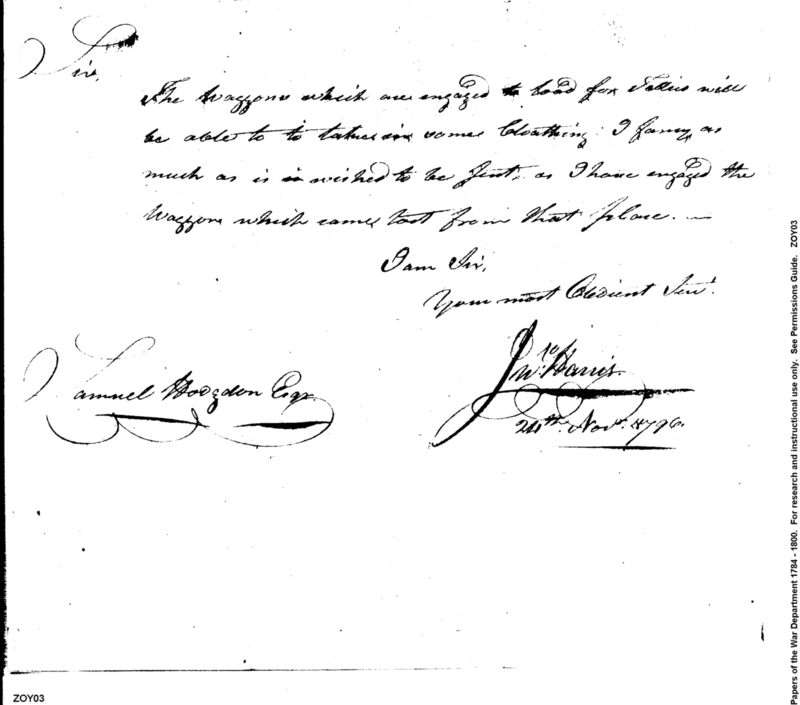 Sir,
The Waggons which are engaged to load for Tellico will
be able to to take in some Cloathing I fancy as
much as is in wished to be sent, as I have engaged the
Waggons which came last from that place. —
I am Sir,
Your most Obedient Servt.
Jno. Harris
Samuel Hodgdon Esqr.
24th Novr. 1796.
Papers of the War Department 1784 - 1800. For research and instructional use only. See Permissions Guide. ZOY03
ZOY03